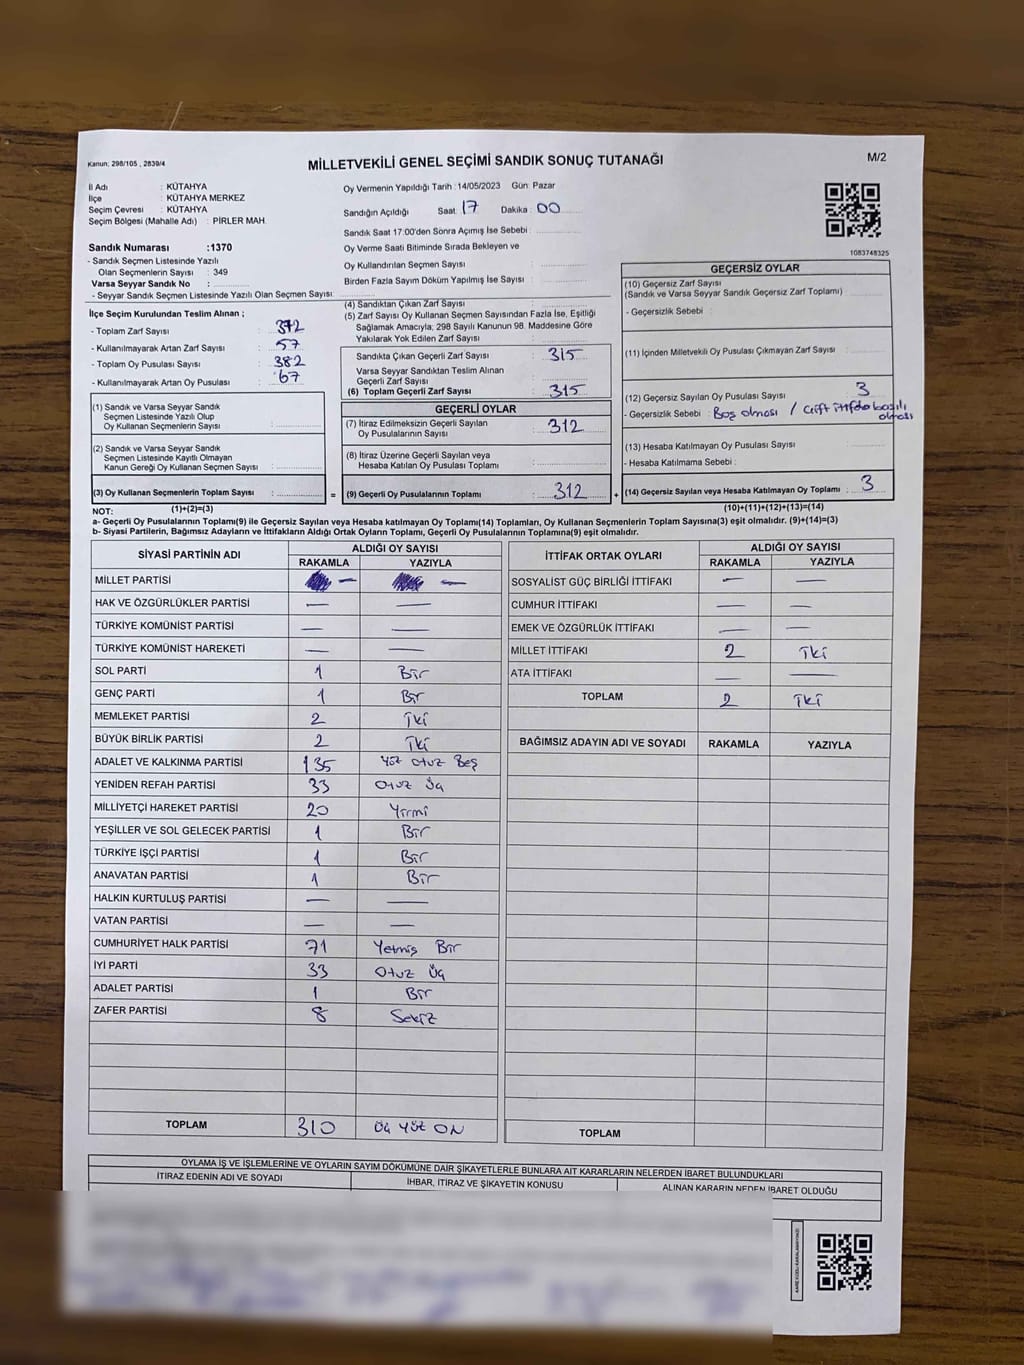 Kanun: 298/105 , 2839/4
MİLLETVEKİLİ GENEL SEÇİMİ SANDIK SONUÇ TUTANAĞI
M/2
İl Adı : KÜTAHYA
İlçe : KÜTAHYA MERKEZ
Seçim Çevresi : KÜTAHYA
Seçim Bölgesi (Mahalle Adı) : PİRLER MAH.
Oy Vermenin Yapıldığı Tarih : 14/05/2023 Gün: Pazar
Sandığın Açıldığı Saat: 17 Dakika : 00
Sandık Saat 17:00'den Sonra Açımış İse Sebebi :
Oy Verme Saati Bitiminde Sırada Bekleyen ve
Oy Kullandırılan Seçmen Sayısı :
Birden Fazla Sayım Döküm Yapılmış İse Sayısı :
1083748325
Sandık Numarası :1370
- Sandık Seçmen Listesinde Yazılı
Olan Seçmenlerin Sayısı : 349
Varsa Seyyar Sandık No :
- Seyyar Sandık Seçmen Listesinde Yazılı Olan Seçmen Sayısı:
İlçe Seçim Kurulundan Teslim Alınan ;
- Toplam Zarf Sayısı : 372
- Kullanılmayarak Artan Zarf Sayısı : 57
- Toplam Oy Pusulası Sayısı : 382
- Kullanılmayarak Artan Oy Pusulası : 67
(1) Sandık ve Varsa Seyyar Sandık
Seçmen Listesinde Yazılı Olup
Oy Kullanan Seçmenlerin Sayısı :
(2) Sandık ve Varsa Seyyar Sandık
Seçmen Listesinde Kayıtlı Olmayan
Kanun Gereği Oy Kullanan Seçmen Sayısı :
(3) Oy Kullanan Seçmenlerin Toplam Sayısı : =
(4) Sandıktan Çıkan Zarf Sayısı :
(5) Zarf Sayısı Oy Kullanan Seçmen Sayısından Fazla İse, Eşitliği
Sağlamak Amacıyla; 298 Sayılı Kanunun 98. Maddesine Göre
Yakılarak Yok Edilen Zarf Sayısı :
Sandıkta Çıkan Geçerli Zarf Sayısı : 315
Varsa Seyyar Sandıktan Teslim Alınan
Geçerli Zarf Sayısı :
(6) Toplam Geçerli Zarf Sayısı : 315
GEÇERLİ OYLAR
(7) İtiraz Edilmeksizin Geçerli Sayılan
Oy Pusulalarının Sayısı : 312
(8) İtiraz Üzerine Geçerli Sayılan veya
Hesaba Katılan Oy Pusulası Toplamı :
(9) Geçerli Oy Pusulalarının Toplamı : 312 +
GEÇERSİZ OYLAR
(10) Geçersiz Zarf Sayısı
(Sandık ve Varsa Seyyar Sandık Geçersiz Zarf Toplamı) :
- Geçersizlik Sebebi :
(11) İçinden Milletvekili Oy Pusulası Çıkmayan Zarf Sayısı :
(12) Geçersiz Sayılan Oy Pusulası Sayısı : 3
- Geçersizlik Sebebi : Boş olması / Çift ittifaka basılı
olması
(13) Hesaba Katılmayan Oy Pusulası Sayısı :
- Hesaba Katılmama Sebebi :
(14) Geçersiz Sayılan veya Hesaba Katılmayan Oy Toplamı : 3
NOT: (1)+(2)=(3)
(10)+(11)+(12)+(13)=(14)
a- Geçerli Oy Pusulalarının Toplamı(9) ile Geçersiz Sayılan veya Hesaba katılmayan Oy Toplamı(14) Toplamları, Oy Kullanan Seçmenlerin Toplam Sayısına(3) eşit olmalıdır. (9)+(14)=(3)
b- Siyasi Partilerin, Bağımsız Adayların ve İttifakların Aldığı Ortak Oyların Toplamı, Geçerli Oy Pusulalarının Toplamına(9) eşit olmalıdır.
SİYASİ PARTİNİN ADI ALDIĞI OY SAYISI
RAKAMLA YAZIYLA
MİLLET PARTİSİ — —
HAK VE ÖZGÜRLÜKLER PARTİSİ — —
TÜRKİYE KOMÜNİST PARTİSİ — —
TÜRKİYE KOMÜNİST HAREKETİ — —
SOL PARTİ 1 Bir
GENÇ PARTİ 1 Bir
MEMLEKET PARTİSİ 2 İki
BÜYÜK BİRLİK PARTİSİ 2 İki
ADALET VE KALKINMA PARTİSİ 135 Yüz Otuz Beş
YENİDEN REFAH PARTİSİ 33 Otuz Üç
MİLLİYETÇİ HAREKET PARTİSİ 20 Yirmi
YEŞİLLER VE SOL GELECEK PARTİSİ 1 Bir
TÜRKİYE İŞÇİ PARTİSİ 1 Bir
ANAVATAN PARTİSİ 1 Bir
HALKIN KURTULUŞ PARTİSİ — —
VATAN PARTİSİ — —
CUMHURİYET HALK PARTİSİ 71 Yetmiş Bir
İYİ PARTİ 33 Otuz Üç
ADALET PARTİSİ 1 Bir
ZAFER PARTİSİ 8 Sekiz
TOPLAM 310 Üç Yüz ON
İTTİFAK ORTAK OYLARI ALDIĞI OY SAYISI
RAKAMLA YAZIYLA
SOSYALİST GÜÇ BİRLİĞİ İTTİFAKI — —
CUMHUR İTTİFAKI — —
EMEK VE ÖZGÜRLÜK İTTİFAKI — —
MİLLET İTTİFAKI 2 İki
ATA İTTİFAKI — —
TOPLAM 2 İki
BAĞIMSIZ ADAYIN ADI VE SOYADI RAKAMLA YAZIYLA
TOPLAM
OYLAMA İŞ VE İŞLEMLERİNE VE OYLARIN SAYIM DÖKÜMÜNE DAİR ŞİKAYETLERLE BUNLARA AİT KARARLARIN NELERDEN İBARET BULUNDUKLARI
İTİRAZ EDENİN ADI VE SOYADI İHBAR, İTİRAZ VE ŞİKAYETİN KONUSU ALINAN KARARIN NEDEN İBARET OLDUĞU